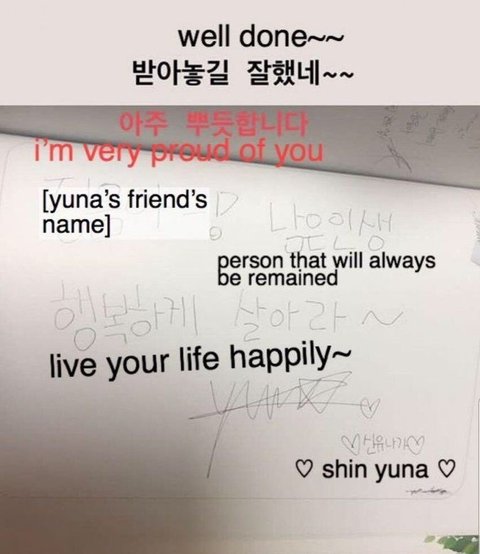 well done~~
받아놓길 잘했네~~
아주 뿌듯합니다
i'm very proud of you
[yuna's friend's
name]
남은인생
person that will always
be remained
행복하게 살아라~
live your life happily~
yuna♡
♡신유나가♡
♡ shin yuna ♡